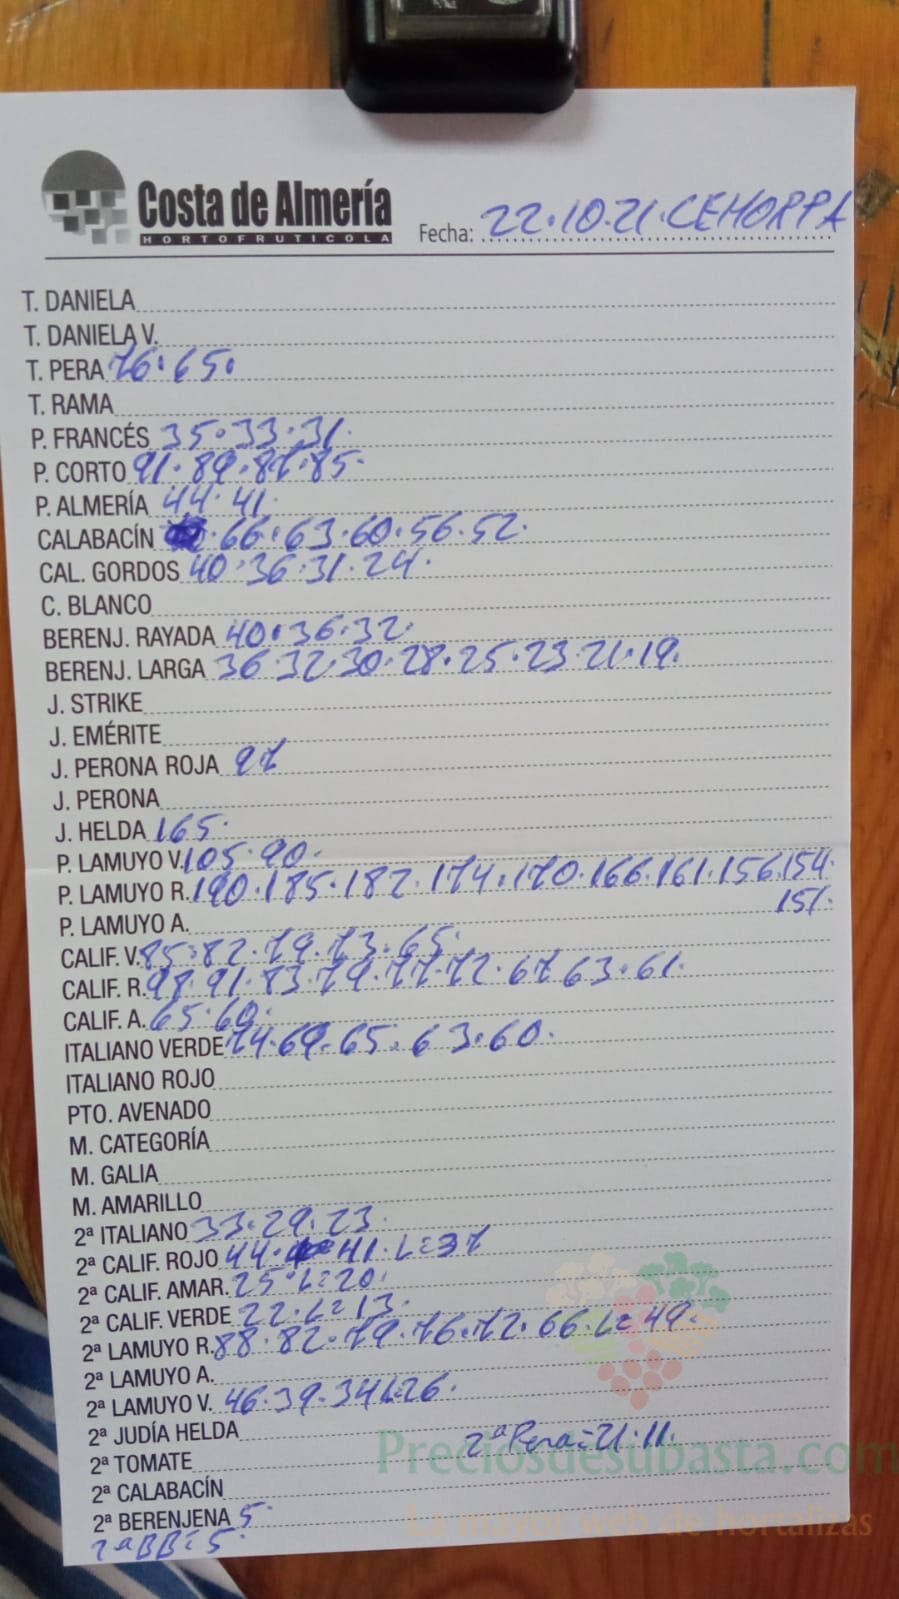 Costa de Almería
HORTOFRUTICOLA
Fecha: 22.10.21.CEHORPA
T. DANIELA
T. DANIELA V.
T. PERA 76.65.
T. RAMA
P. FRANCÉS 35.33.31.
P. CORTO 91.89.87.85.
P. ALMERÍA 44.41.
CALABACÍN .66.63.60.56.52.
CAL. GORDOS 40.36.31.24.
C. BLANCO
BERENJ. RAYADA 40.36.32.
BERENJ. LARGA 36.32.30.28.25.23.21.19.
J. STRIKE
J. EMÉRITE
J. PERONA ROJA 97
J. PERONA
J. HELDA 165.
P. LAMUYO V. 105.90.
P. LAMUYO R. 190.185.182.174.170.166.161.156.154
151.
P. LAMUYO A.
CALIF. V. 85.82.79.73.65.
CALIF. R. 98.91.83.79.77.72.67.63.61.
CALIF. A. 65.60.
ITALIANO VERDE 74.69.65.63.60.
ITALIANO ROJO
PTO. AVENADO
M. CATEGORÍA
M. GALIA
M. AMARILLO
2ª ITALIANO 33.29.23.
2ª CALIF. ROJO 44. 41.L=37
2ª CALIF. AMAR. 25.L=20.
2ª CALIF. VERDE 22.L=13.
2ª LAMUYO R. 88.82.79.76.72.66.L=49.
2ª LAMUYO A.
2ª LAMUYO V. 46.39.34.L=26.
2ª JUDÍA HELDA
2ª Pera=21.11.
2ª TOMATE
Preciosdesubasta.com
2ª CALABACÍN
2ª BERENJENA 5.
La mayor web de hortalizas
2ªBB=5.